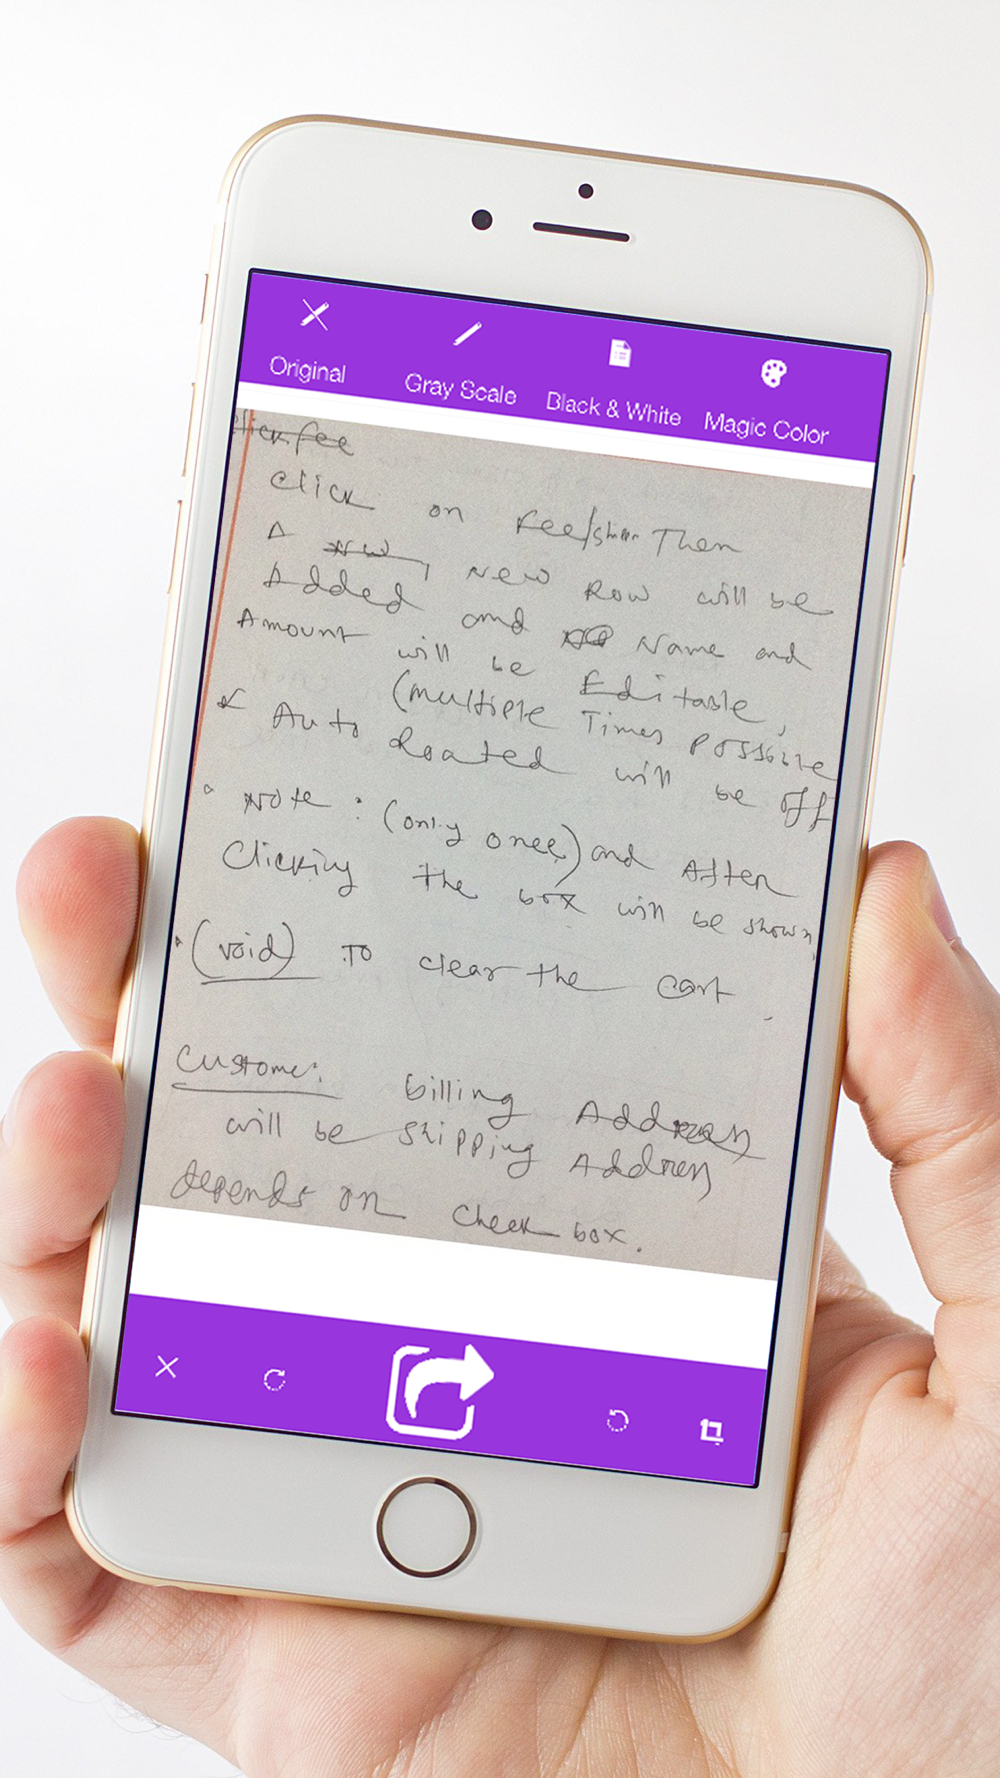 Original
Gray Scale
Black & White
Magic Color
Click fee
Click on Fee/ Then
A New Row will be
Added and Name and
Amount will be Editable,
(Multiple Times Possible
Auto Loated will be off
Note : (only once) and After
Clicking the box will be shown,
(void) To clear the cart.
Customer: billing Address
will be shipping Address
depends on Check box.